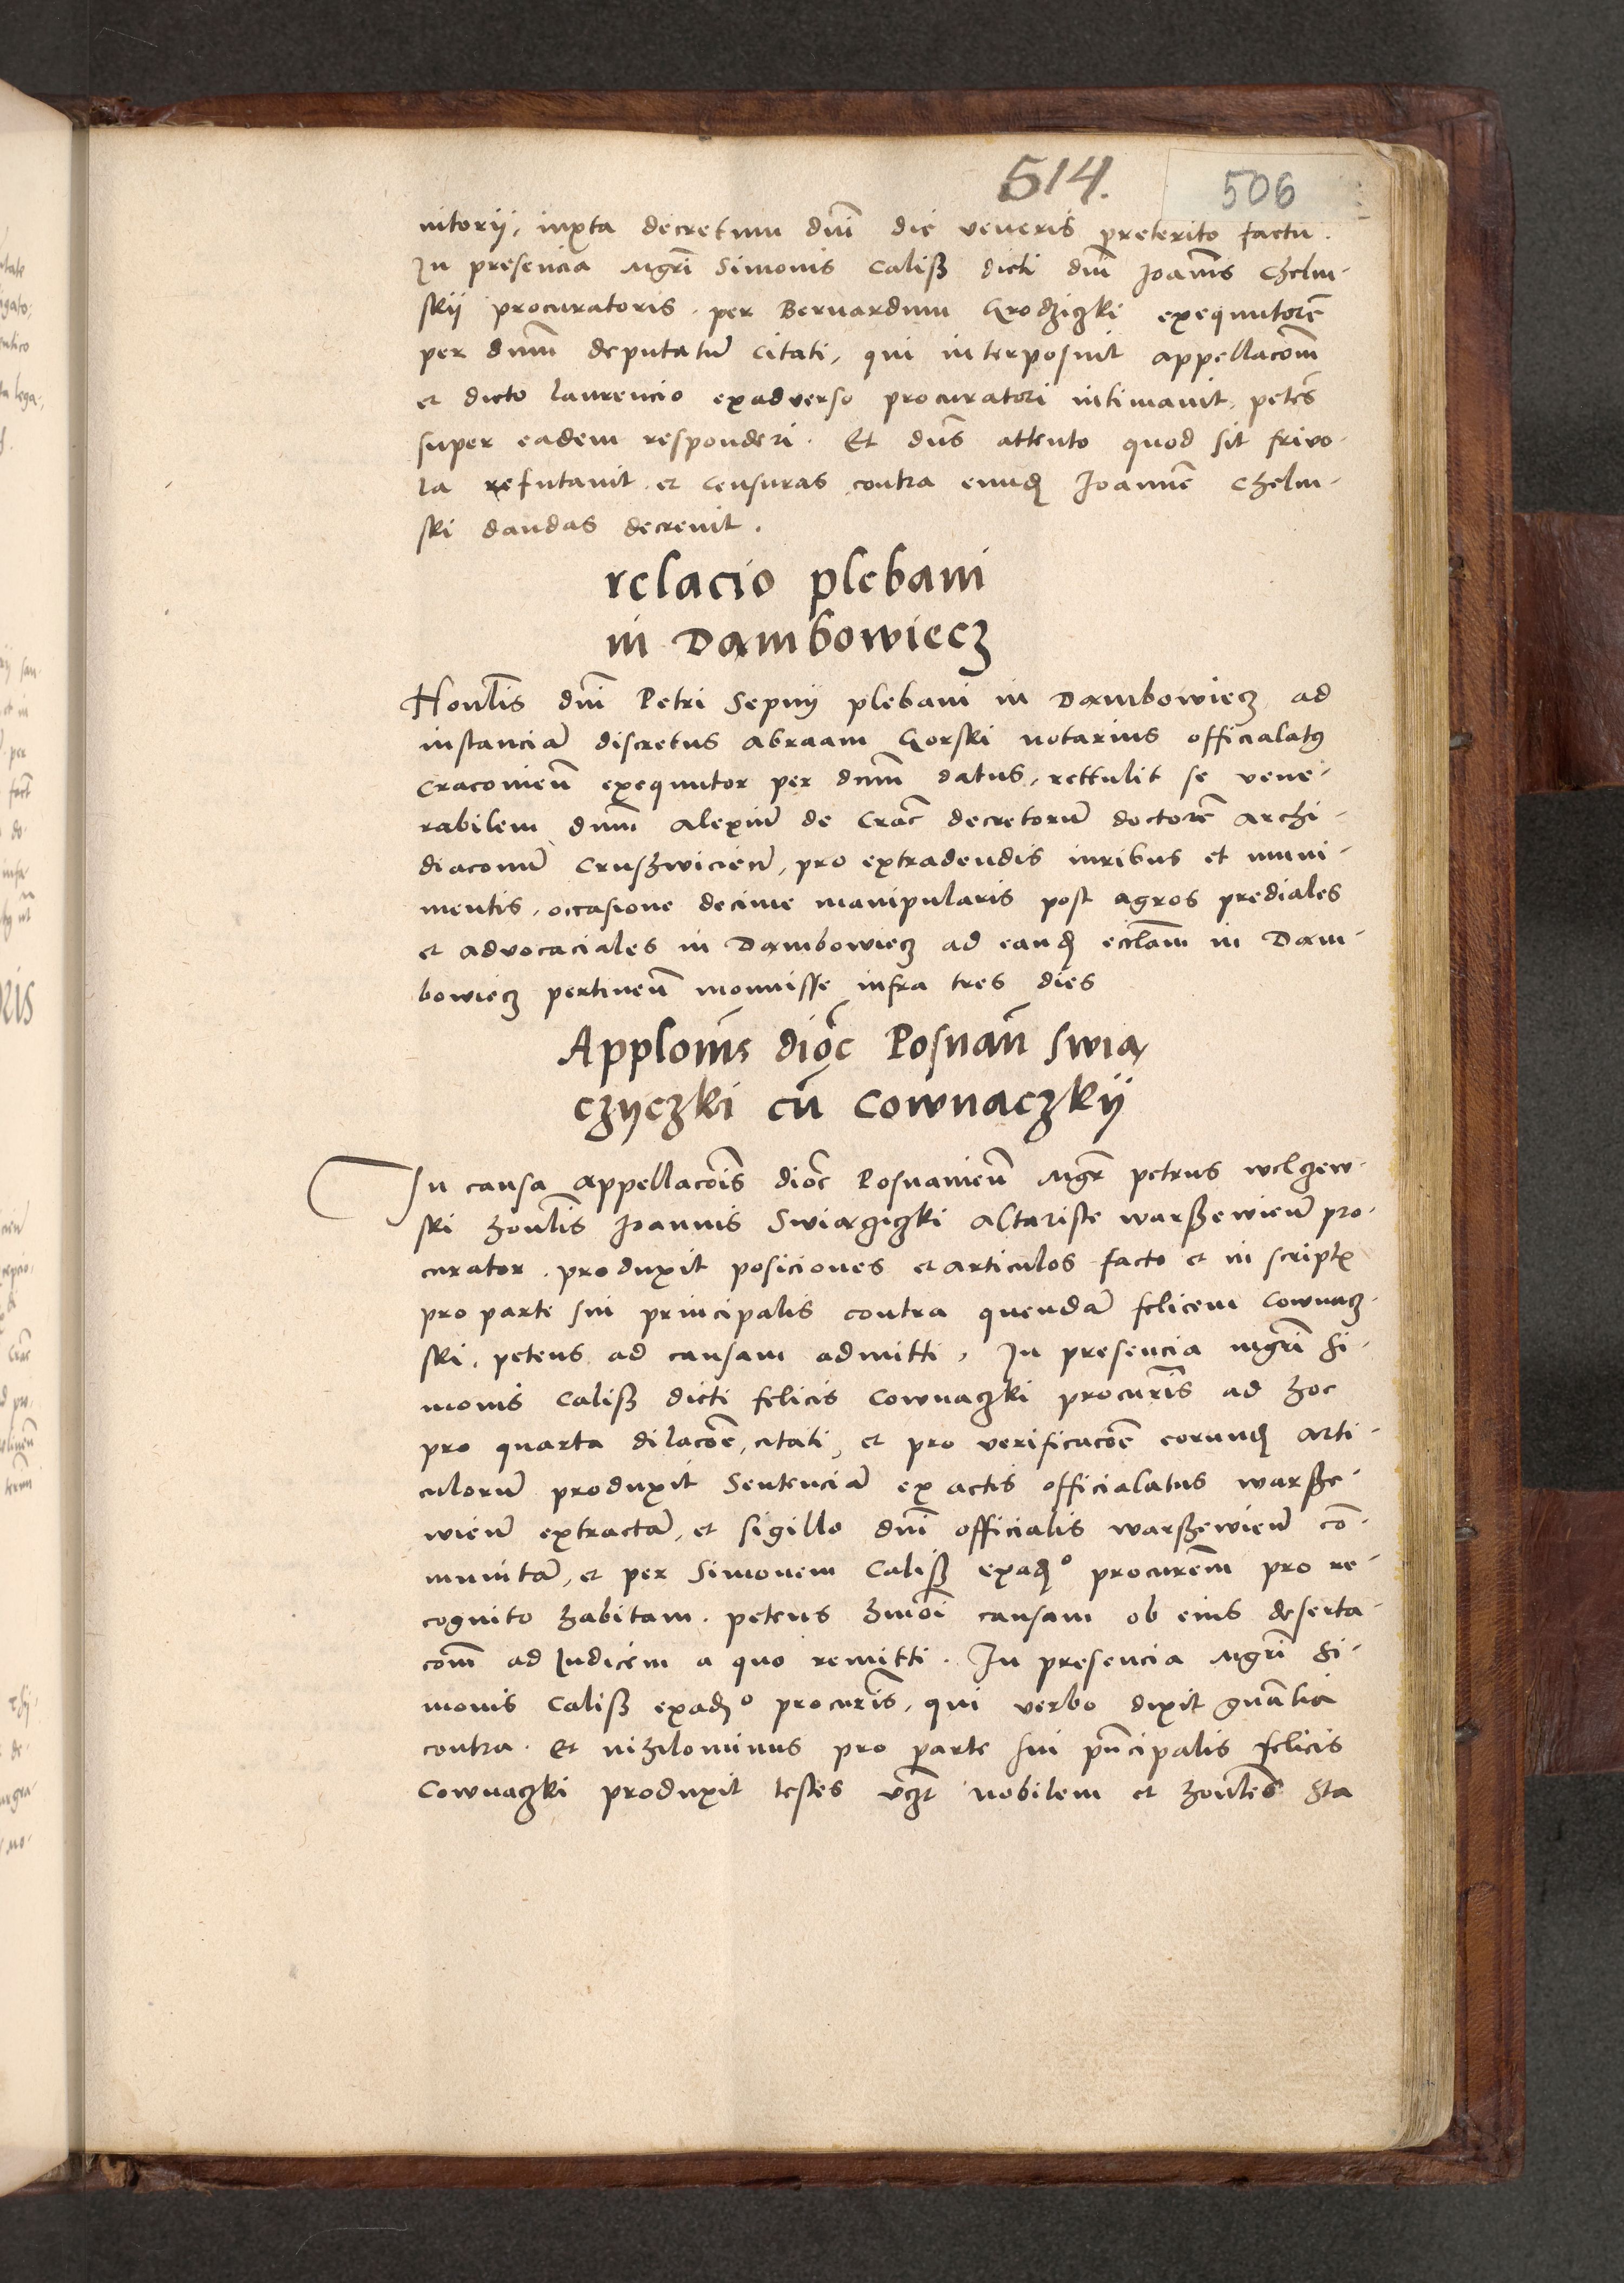 514.
506
nitorij, iuxta decretum dn̄i die veneris preterito factū.
In presencia Mgr̄i Simonis Calisz dicti dn̄i Joan̄is Chelm-
skij procuratoris per Bernardum Grodziczki exequutorē
per dnm̄ deputatū citati, qui interposuit appellacōm̄
et dicto laurencio exadverso procuratori intimavit, petēs
super eadem responderi. Et dns̄ attento quod sit frivo-
la refutavit et censuras contra eundꝫ Joannē Chelm-
ski dandas decrevit.
relacio plebani
in Dambowiecz
Honl̄is dn̄i Petri Sepnij plebani in Dambowiecz ad
instanciā discretus Abraam Gorski notarius officialatꝰ
Cracovien̄ exequutor per dnm̄ datus, rettulit se vene-
rabilem dnm̄ Alexiū de Crac̄ decretorū doctorē Archi-
diaconū Cruszwicień, pro extradendis iuribus et muni-
mentis, occasione decime manipularis post agros prediales
et advocaciales in Dambowiecz ad eandꝫ eccl̄am in Dam-
bowiecz pertineń monuisse infra tres dies
Applōnis dioc̄ Posnań Swią
czyczki cū Cownaczkij
In causa appellacōis dioc̄ Posnanień Mgr̄ petrus wlczew-
ski honl̄is Joannis Swiąciczki Altariste warszewień pro-
curator, produxit posiciones et articulos facto et in scripti͛s
pro parte sui principalis contra quendā felicem Cownacz-
ski, petens ad causam admitti, In presencia mgr̄i Si-
monis Calisz dicti felicis Cownaczki procurīs ad hoc
pro quarta dilacōe, citati, et pro verificacōe eorundꝫ arti-
culorū produxit Sentenciā ex actis officialatus warsze-
wień extractā, et sigillo dn̄i officialis warszewień cō-
munitā, et per Simonem Calisz exadꝫ° procurēm pro re-
cognito habitam. petens hmōi causam ob eius deserta-
cōm̄ ad Iudicem a quo remitti. In presencia Mgr̄i Si-
monis Calisz exadꝫ° procurīs, qui verbo dixit gnālia
contra. Et nihilominus pro parte sui pn̄cipalis felicis
Cownaczki produxit testes vczt nobilem et honl̄es Sta